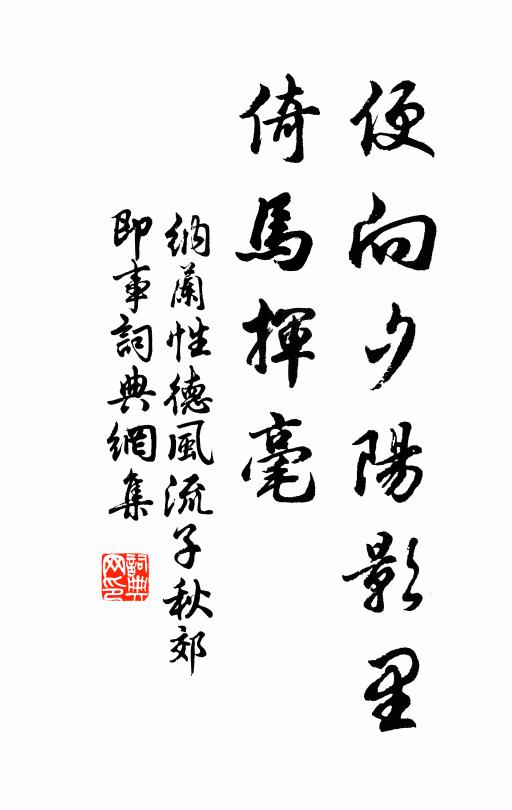 便向夕陽影里
倚馬揮毫
納蘭性德風流子秋郊
即事詞典網集
詞典
网印